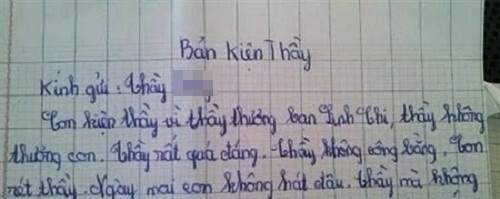 Bản kiện Thầy
Kính gửi: Thầy
Con kiện thầy vì thầy thương bạn Linh Chi, thầy không
thương con. Thầy rất quá đáng. Thầy không công bằng. Con
rét thầy. Ngày mai con không hát đâu. Thầy mà không